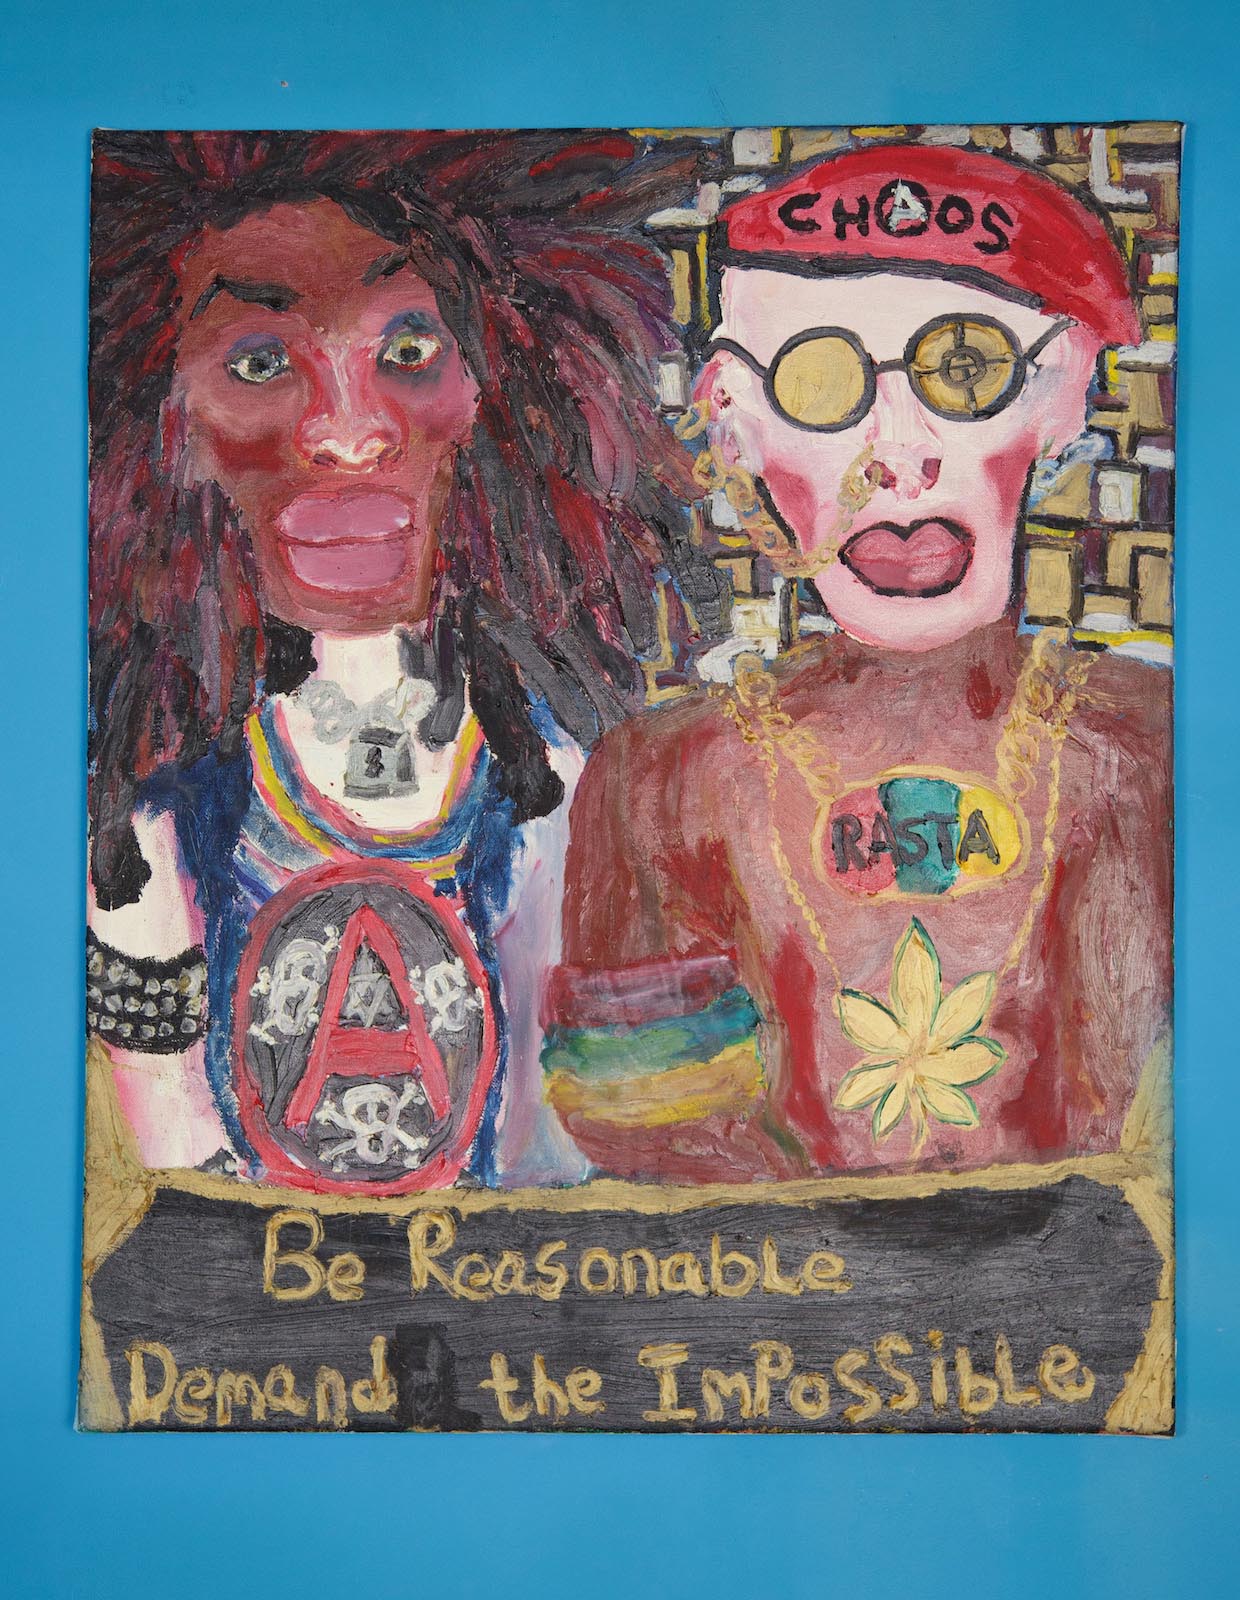 CHAOS
RASTA
A
Be Reasonable
Demand the ImPossible